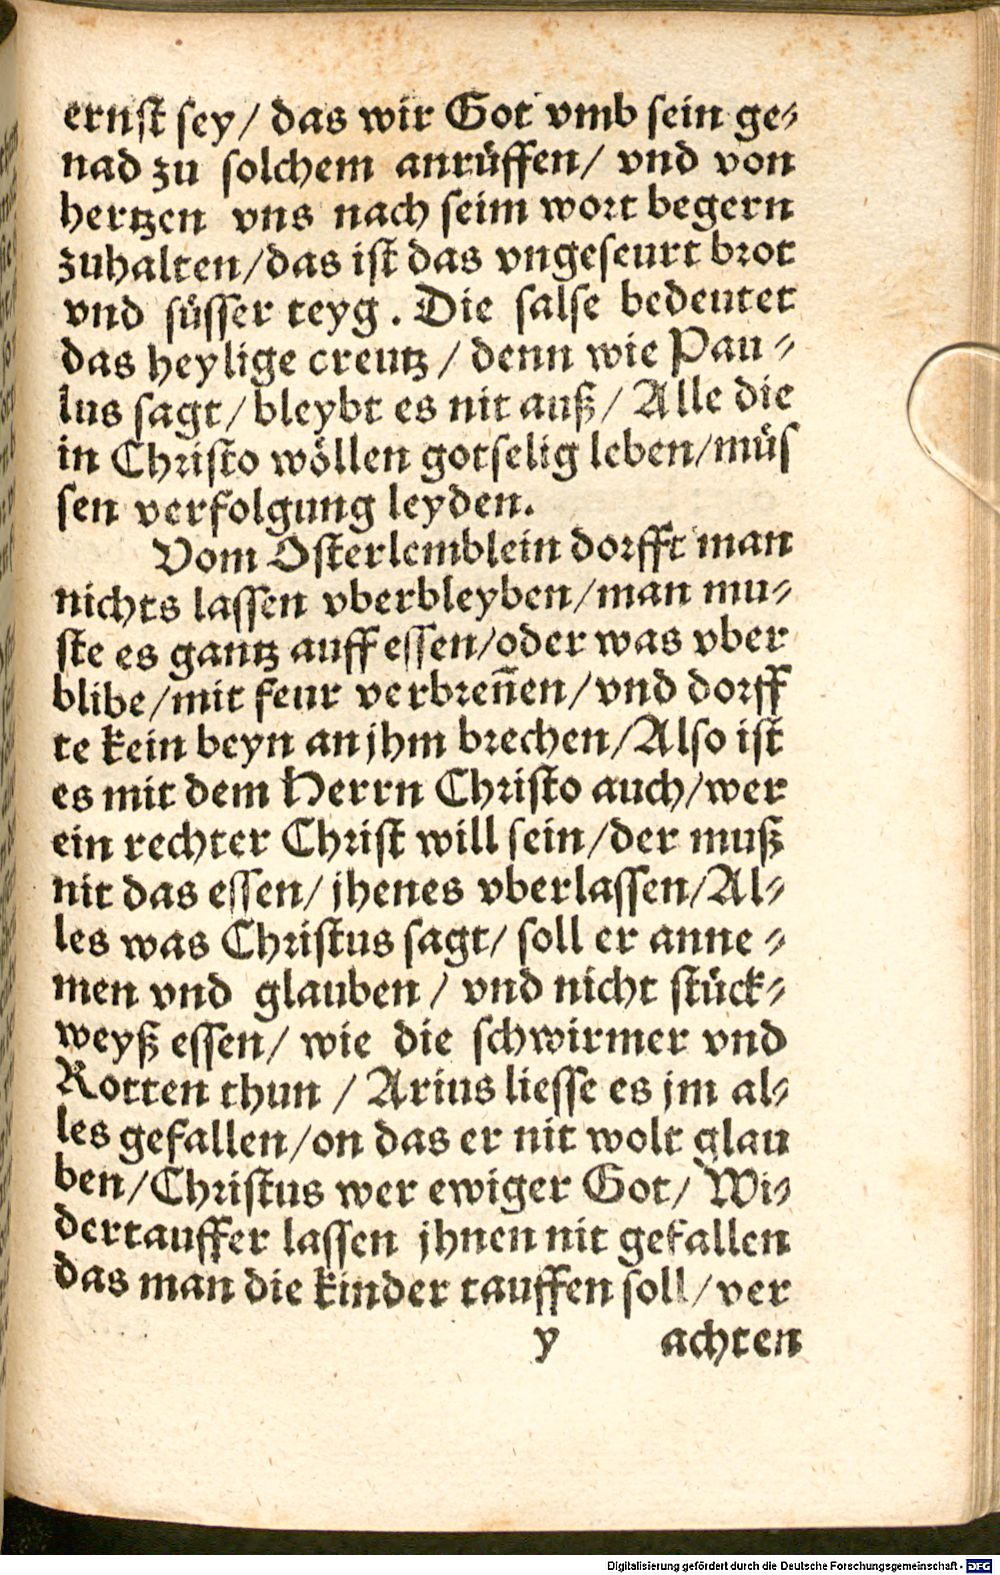 ernſt ſey/ das wir Got vmb ſein ge⸗
nad zu ſolchem anrüffen/ vnd von
hertzen vns nach ſeim wort begern
zuhalten/das iſt das vngeſeurt brot
vnd ſüſſer teyg. Die ſalſe bedeutet
das heylige creutz / denn wie Pau⸗
lus ſagt/bleybt es nit auß/ Alle die
in Chriſto wöllen gotſelig leben/müſ
ſen verfolgung leyden.
Vom Oſterlemblein dorfft man
nichts laſſen vberbleyben/man mu⸗
ſte es gantz auff eſſen/oder was vber
blibe/mit feur verbren̄en/vnd dorff
te kein beyn an jhm brechen/Alſo iſt
es mit dem Herrn Chriſto auch/wer
ein rechter Chriſt will ſein/der muß
nit das eſſen/ jhenes vberlaſſen/Al⸗
les was Chriſtus ſagt/ ſoll er anne⸗
men vnd glauben/ vnd nicht ſtück⸗
weyß eſſen/ wie die ſchwirmer vnd
Rotten thun / Arius lieſſe es jm al⸗
les gefallen/on das er nit wolt glau
ben/Chriſtus wer ewiger Got/ Wi⸗
dertauffer laſſen jhnen nit gefallen
das man die kinder tauffen ſoll/ver
y achten
Digitalisierung gefördert durch die Deutsche Forschungsgemeinschaft - DFG